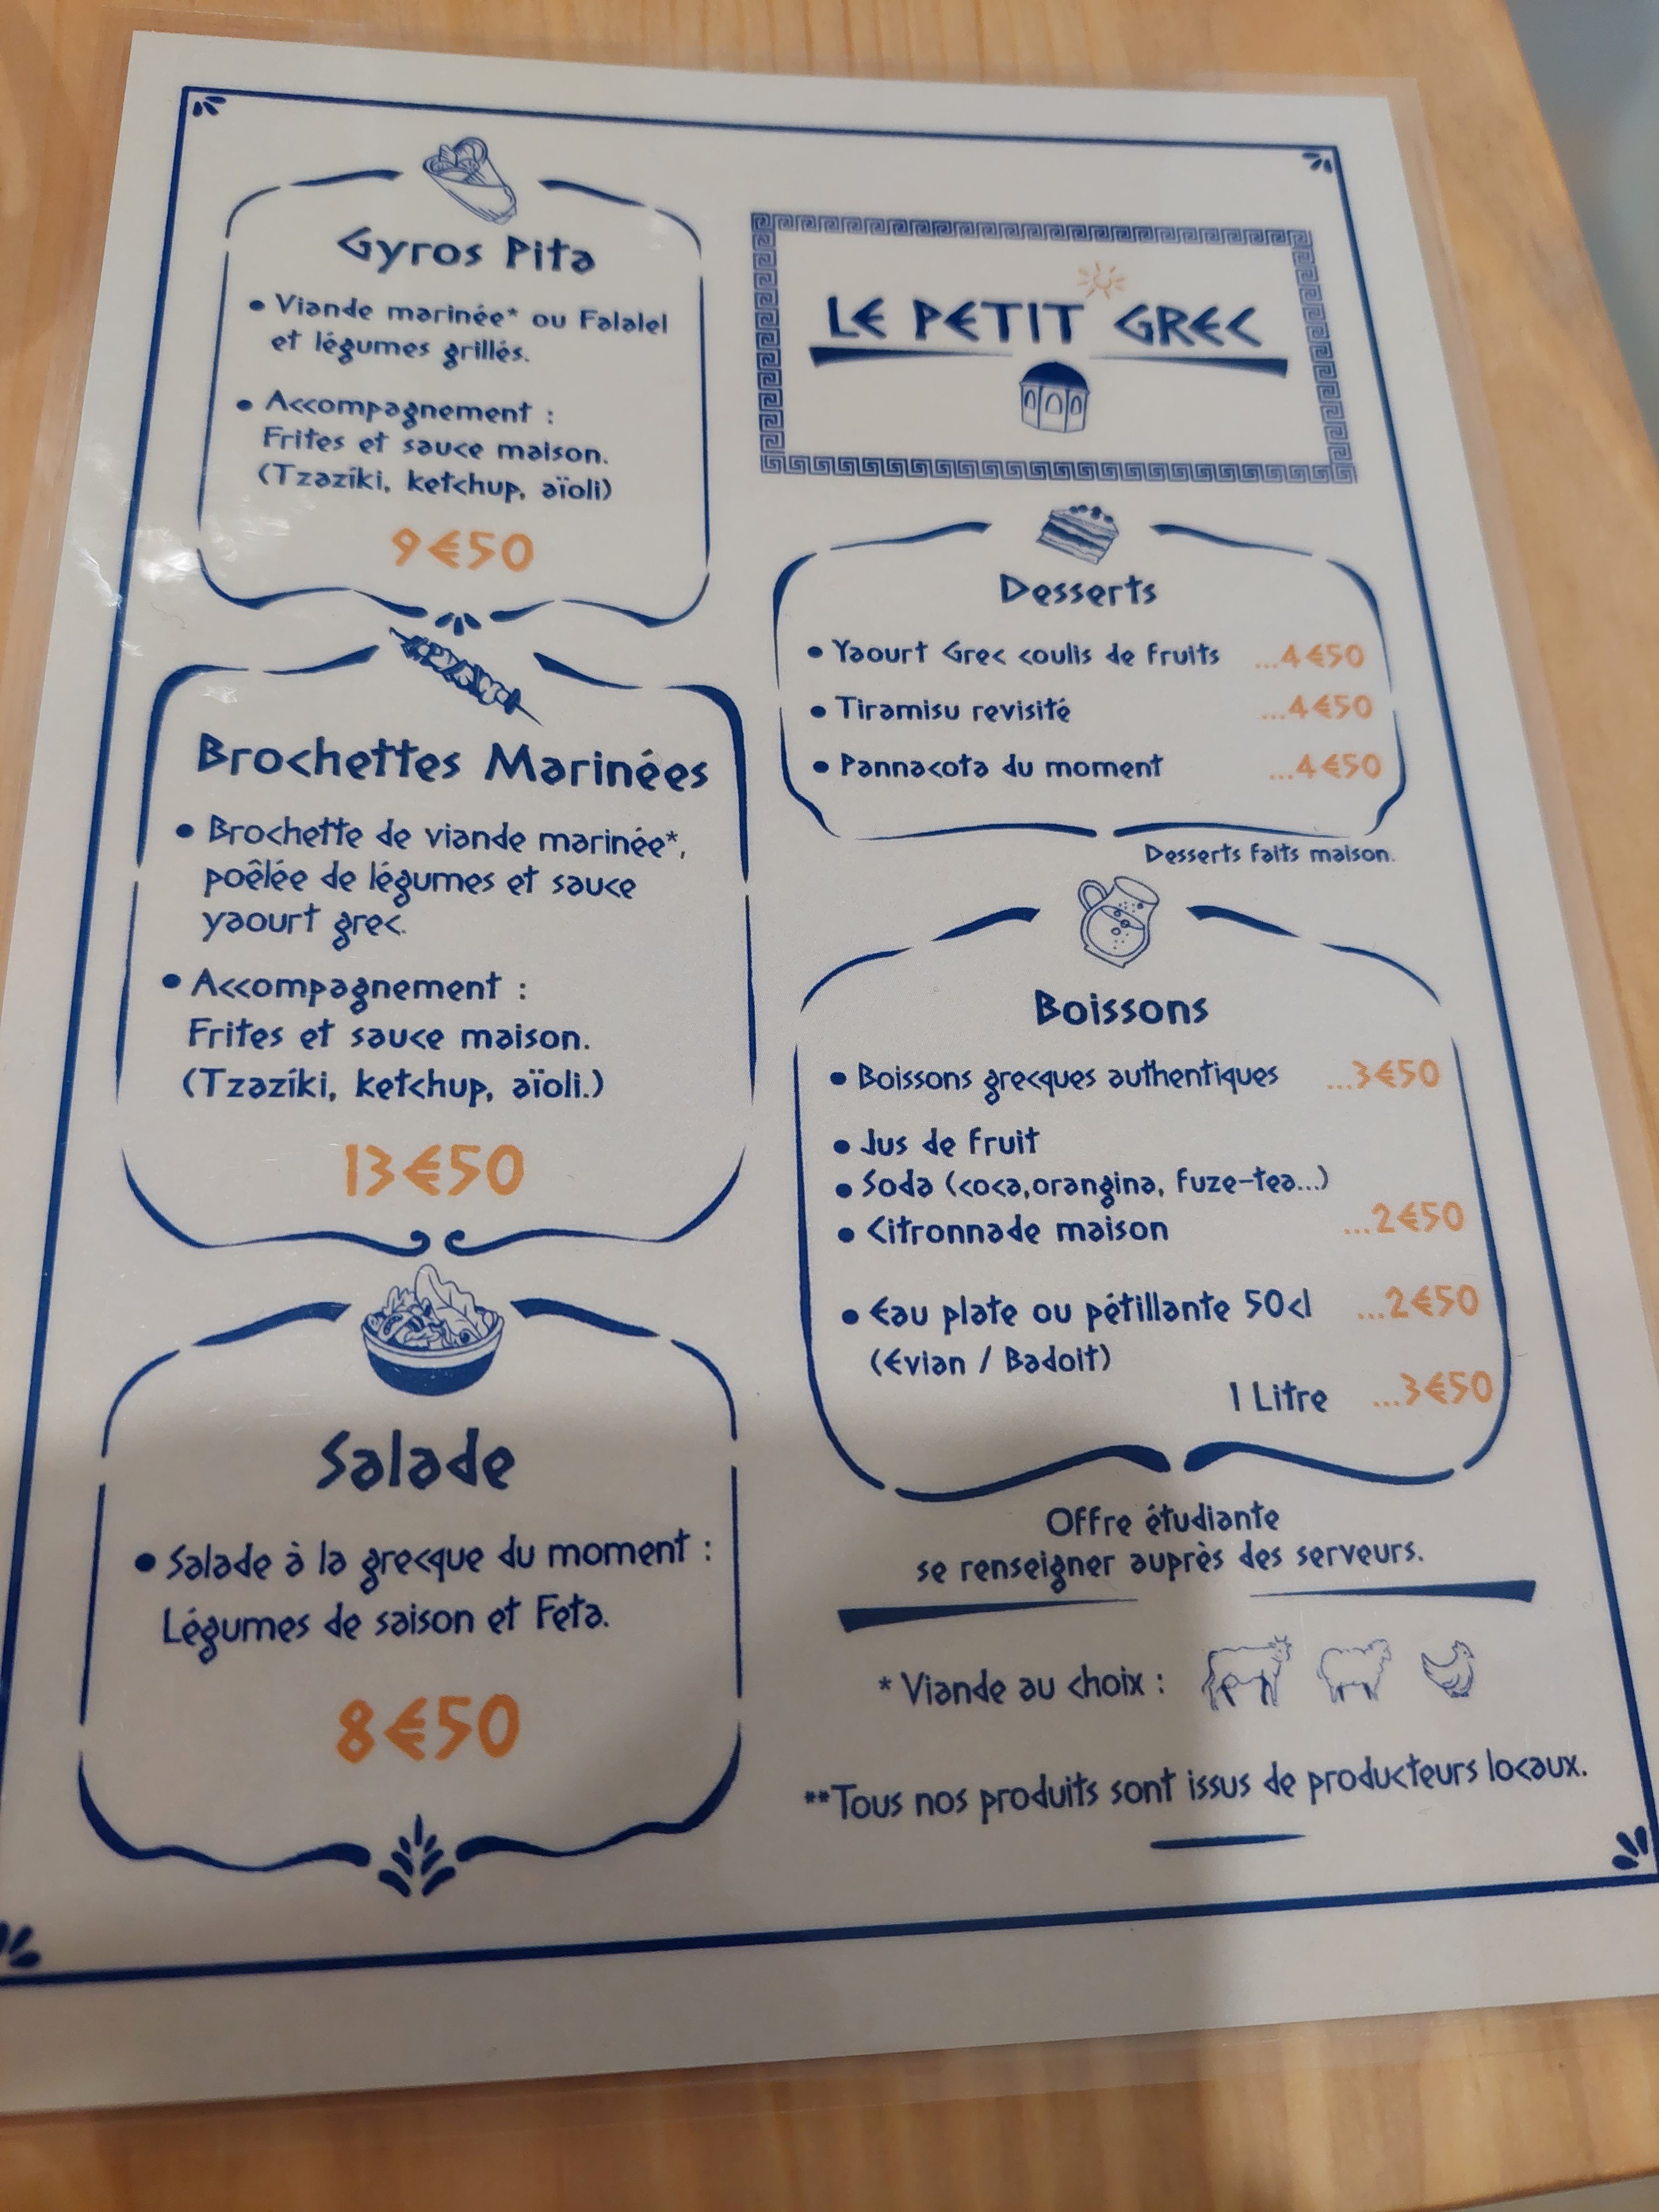 Gyros Pita
• Viande marinée* ou Falalel
et légumes grillés.
• Accompagnement :
Frites et sauce maison.
(Tzaziki, ketchup, aïoli)
9€50
Brochettes Marinées
• Brochette de viande marinée*,
poêlée de légumes et sauce
yaourt grec.
• Accompagnement :
Frites et sauce maison.
(Tzaziki, ketchup, aïoli.)
13€50
Salade
• Salade à la grecque du moment :
Légumes de saison et Feta.
8€50
LE PETIT GREC
Desserts
• Yaourt Grec coulis de fruits ...4€50
• Tiramisu revisité ...4€50
• Pannacota du moment ...4€50
Desserts faits maison.
Boissons
• Boissons grecques authentiques ...3€50
• Jus de fruit
• Soda (coca,orangina, fuze-tea...)
• Citronnade maison ...2€50
• Eau plate ou pétillante 50cl ...2€50
(Evian / Badoit)
1 Litre ...3€50
Offre étudiante
se renseigner auprès des serveurs.
* Viande au choix :
**Tous nos produits sont issus de producteurs locaux.